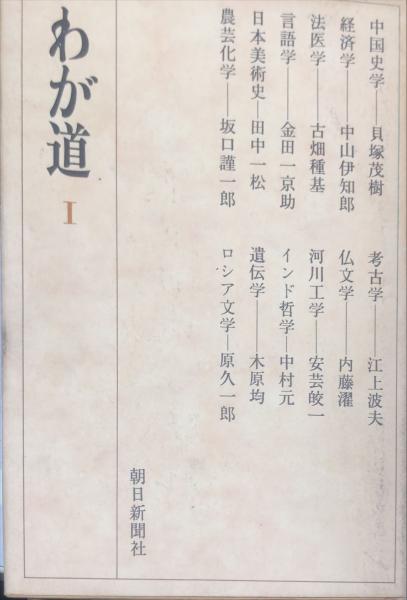 中国史学――貝塚茂樹
経済学――中山伊知郎
法医学――古畑種基
言語学――金田一京助
日本美術史―田中一松
農芸化学――坂口謹一郎
考古学――江上波夫
仏文学――内藤濯
河川工学――安芸皎一
インド哲学―中村元
遺伝学――木原均
ロシア文学―原久一郎
わが道
I
朝日新聞社